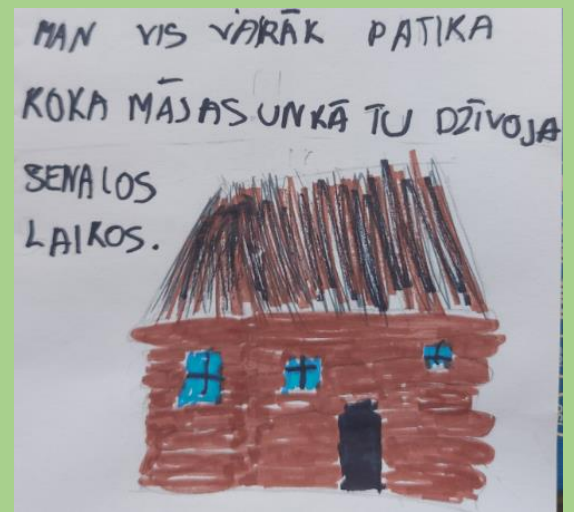 MAN VIS VARĀK PATIKA
KOKA MĀJAS UN KĀ TU DZĪVOJA
SENAIOS
LAIKOS.